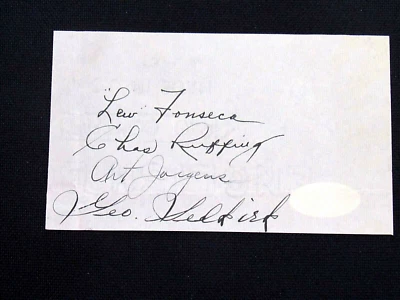 "Lew" Fonseca
Chas Ruffing
Art Jorgens
Geo. Selkirk